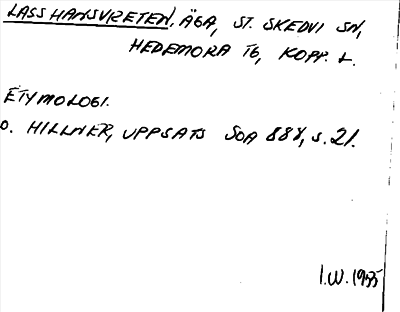 LASS HANSVRETEN, ÄGA, ST. SKEDVI SN,
HEDEMORA TG, KOPP. L.
ETYMOLOGI.
O. HILLNER, UPPSATS SOA 888, S. 21.
I.W. 1955